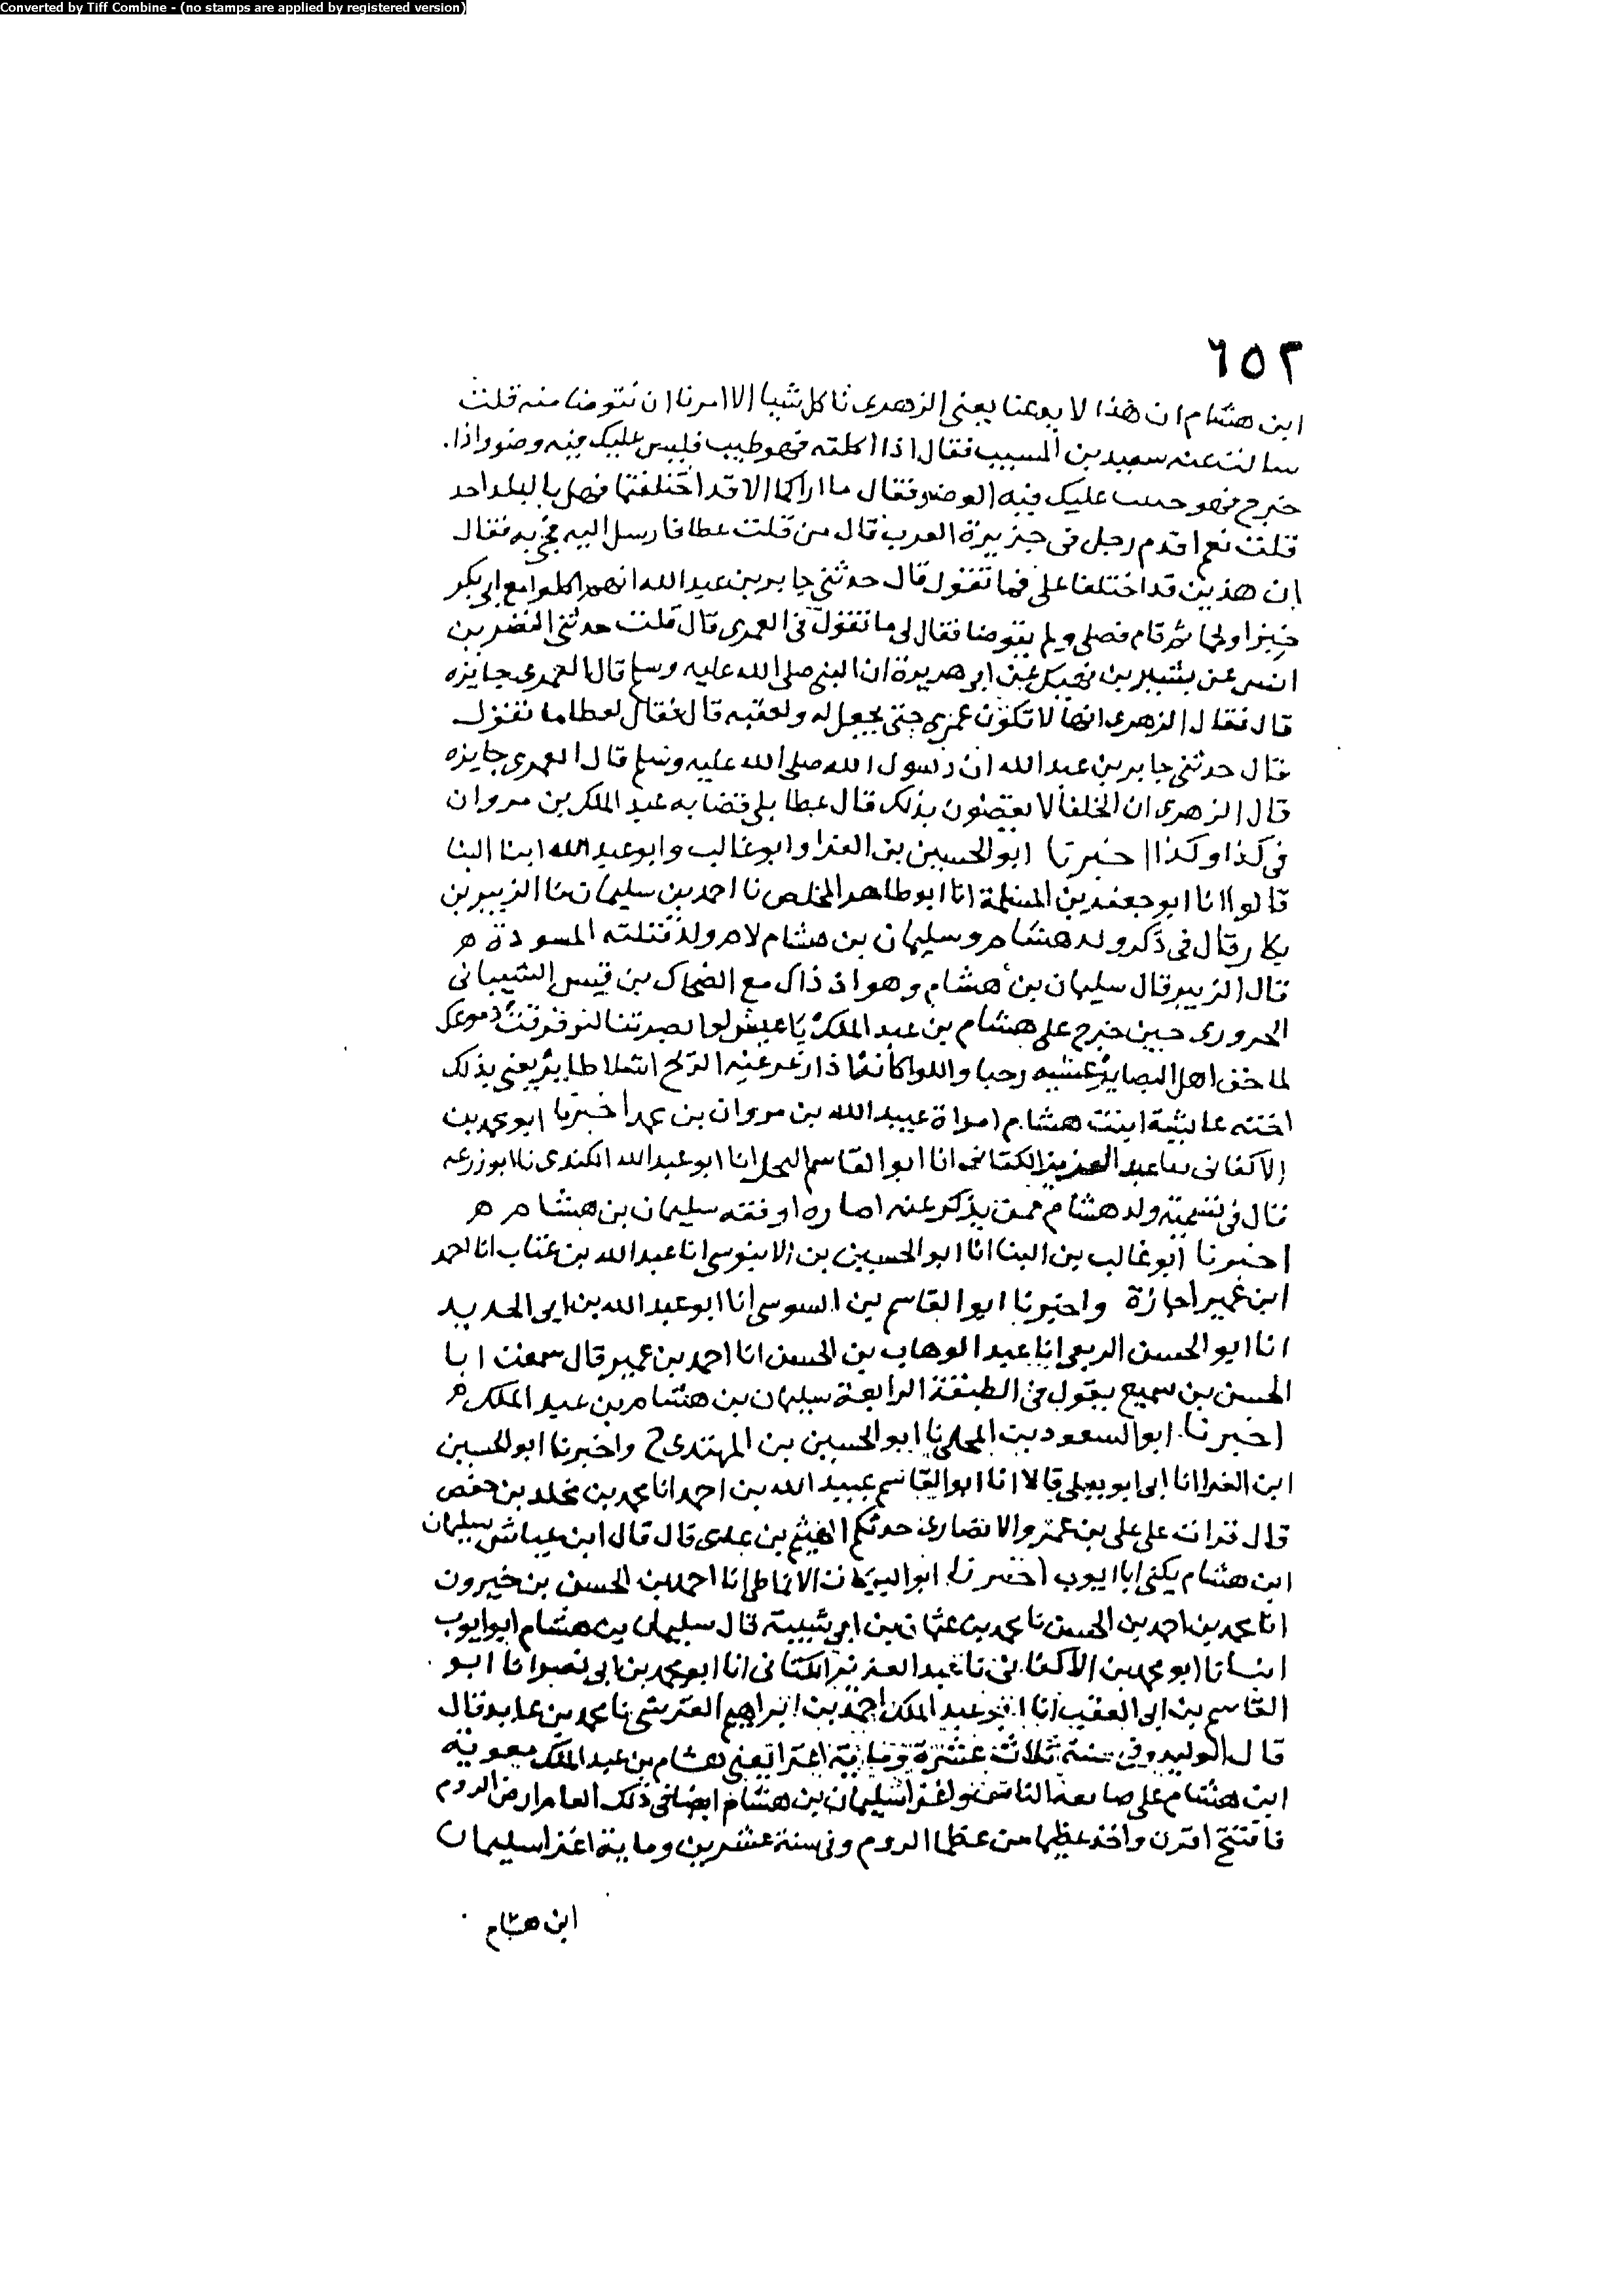 Converted by Tiff Combine - (no stamps are applied by registered version)
٦٥٢
ابن هشام ان هذا لا يدعنا يعني الزهري ناكل شيا الا امرنا ان نتوضا منه قلت
سالت عنه سعيد بن المسيب فقال اذا اكلته فهو طيب فليس عليك فيه وضو واذا
خرج فهو خبيث عليك فيه الوضو فقال ما اراكما الا قد اختلفتما فهل بالبلد احد
قلت نعم اقدم رجل في جزيرة العرب قال من قلت عطا فارسل اليه فجي به فقال
ان هذين قد اختلفا علي فما تقول قال حدثني جابر بن عبد الله انهم اكلوا مع ابي بكر
خبزا ولحما ثم قام فصلى ولم يتوضا فقال لي ما تقول في العمرى قال قلت حدثني النضر بن
انس عن بشير بن نهيك عن ابي هريرة ان النبي صلى الله عليه وسلم قال العمرى جايزه
قال فقال الزهري انها لا تكون عمرى حتى يجعل له ولعقبه قال فقال لعطا ما تقول
قال حدثني جابر بن عبد الله ان رسول الله صلى الله عليه وسلم قال العمرى جايزه
قال الزهري ان الخلفا لا يقضون بذلك قال عطا بلى قضا به عبد الملك بن مروان
في كذا وكذا اخبرنا ابو الحسين بن الفرا وابو غالب وابو عبد الله ابنا البنا
قالوا انا ابو جعفر بن المسلمة انا ابو طاهر المخلص نا احمد بن سليمان نا الزبير بن
بكار قال في ذكر ولد هشام وسليمان بن هشام لام ولد قتلته المسودة ه
قال الزبير قال سليمان بن هشام وهو اذ ذاك مع الضحاك بن قيس الشيباني
الحروري حين خرج على هشام بن عبد الملك يا عيش لو ابصرتنا لترقرقت دموعك
لما خف اهل البصاير عشيه رحنا واللوا كانما ذا زعزعته الريح اشلا طاير يعني بذلك
اخته عايشة ابنت هشام امراة عبيد الله بن مروان بن محمد اخبرنا ابو محمد بن
الاكفاني نا عبد العزيز الكتاني انا ابو القاسم البجلي انا ابو عبد الله الكندي نا ابو زرعه
قال في تسمية ولد هشام ممن يذكر عنه اماره او فقه سليمان بن هشام ه ه
اخبرنا ابو غالب بن البنا انا ابو الحسين بن الابنوسي انا عبد الله بن عتاب انا احمد
ابن عمير اجازة واخبرنا ابو القاسم بن السوسي انا ابو عبد الله بن ابي الحديد
انا ابو الحسن الربعي انا عبد الوهاب بن الحسن انا احمد بن عمير قال سمعت ابا
الحسن بن سميع يقول في الطبقة الرابعة سليمان بن هشام بن عبد الملك ه
اخبرنا ابو السعود بن المجلي نا ابو الحسين بن المهتدي ح واخبرنا ابو الحسين
ابن الفرا انا ابي ابو يعلى قالا انا ابو القاسم عبيد الله بن احمد انا محمد بن مخلد بن حفص
قال قرات على علي بن عمرو الانصاري حدثكم الهيثم بن عدي قال قال ابن عياش سليمان
ابن هشام يكنى ابا ايوب اخبرنا ابو البركات الانماطي انا احمد بن الحسن بن خيرون
انا محمد بن احمد بن الحسن نا محمد بن عثمان بن ابي شيبة قال سليمان بن هشام ابو ايوب
انبانا ابو محمد بن الاكفاني نا عبد العزيز الكتاني انا ابو محمد بن ابي نصر انا ابو
القاسم بن ابي العقب انا ابو عبد الملك احمد بن ابراهيم القرشي نا محمد بن عايد قال
قال الوليد وفي سنة ثلاث عشرة وماية اغزا يعني هشام بن عبد الملك معوية
ابن هشام على صايفة الناس واغزا سليمان بن هشام ايضا في ذلك العام ارض الروم
فافتتح اقرن واخذ عظيما من عظما الروم وفي سنة عشرين وماية اغزا سليمان
ابن هشام